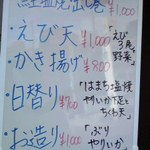 経塩焼出巻 ¥1,000
・えび天 ¥1,000 「えび3尾 野菜」
・かき揚げ ¥800
・日替り ¥700 「はまち塩焼 やりいか天と ちくわ天」
・お造り ¥1000 「ぶり やりいか